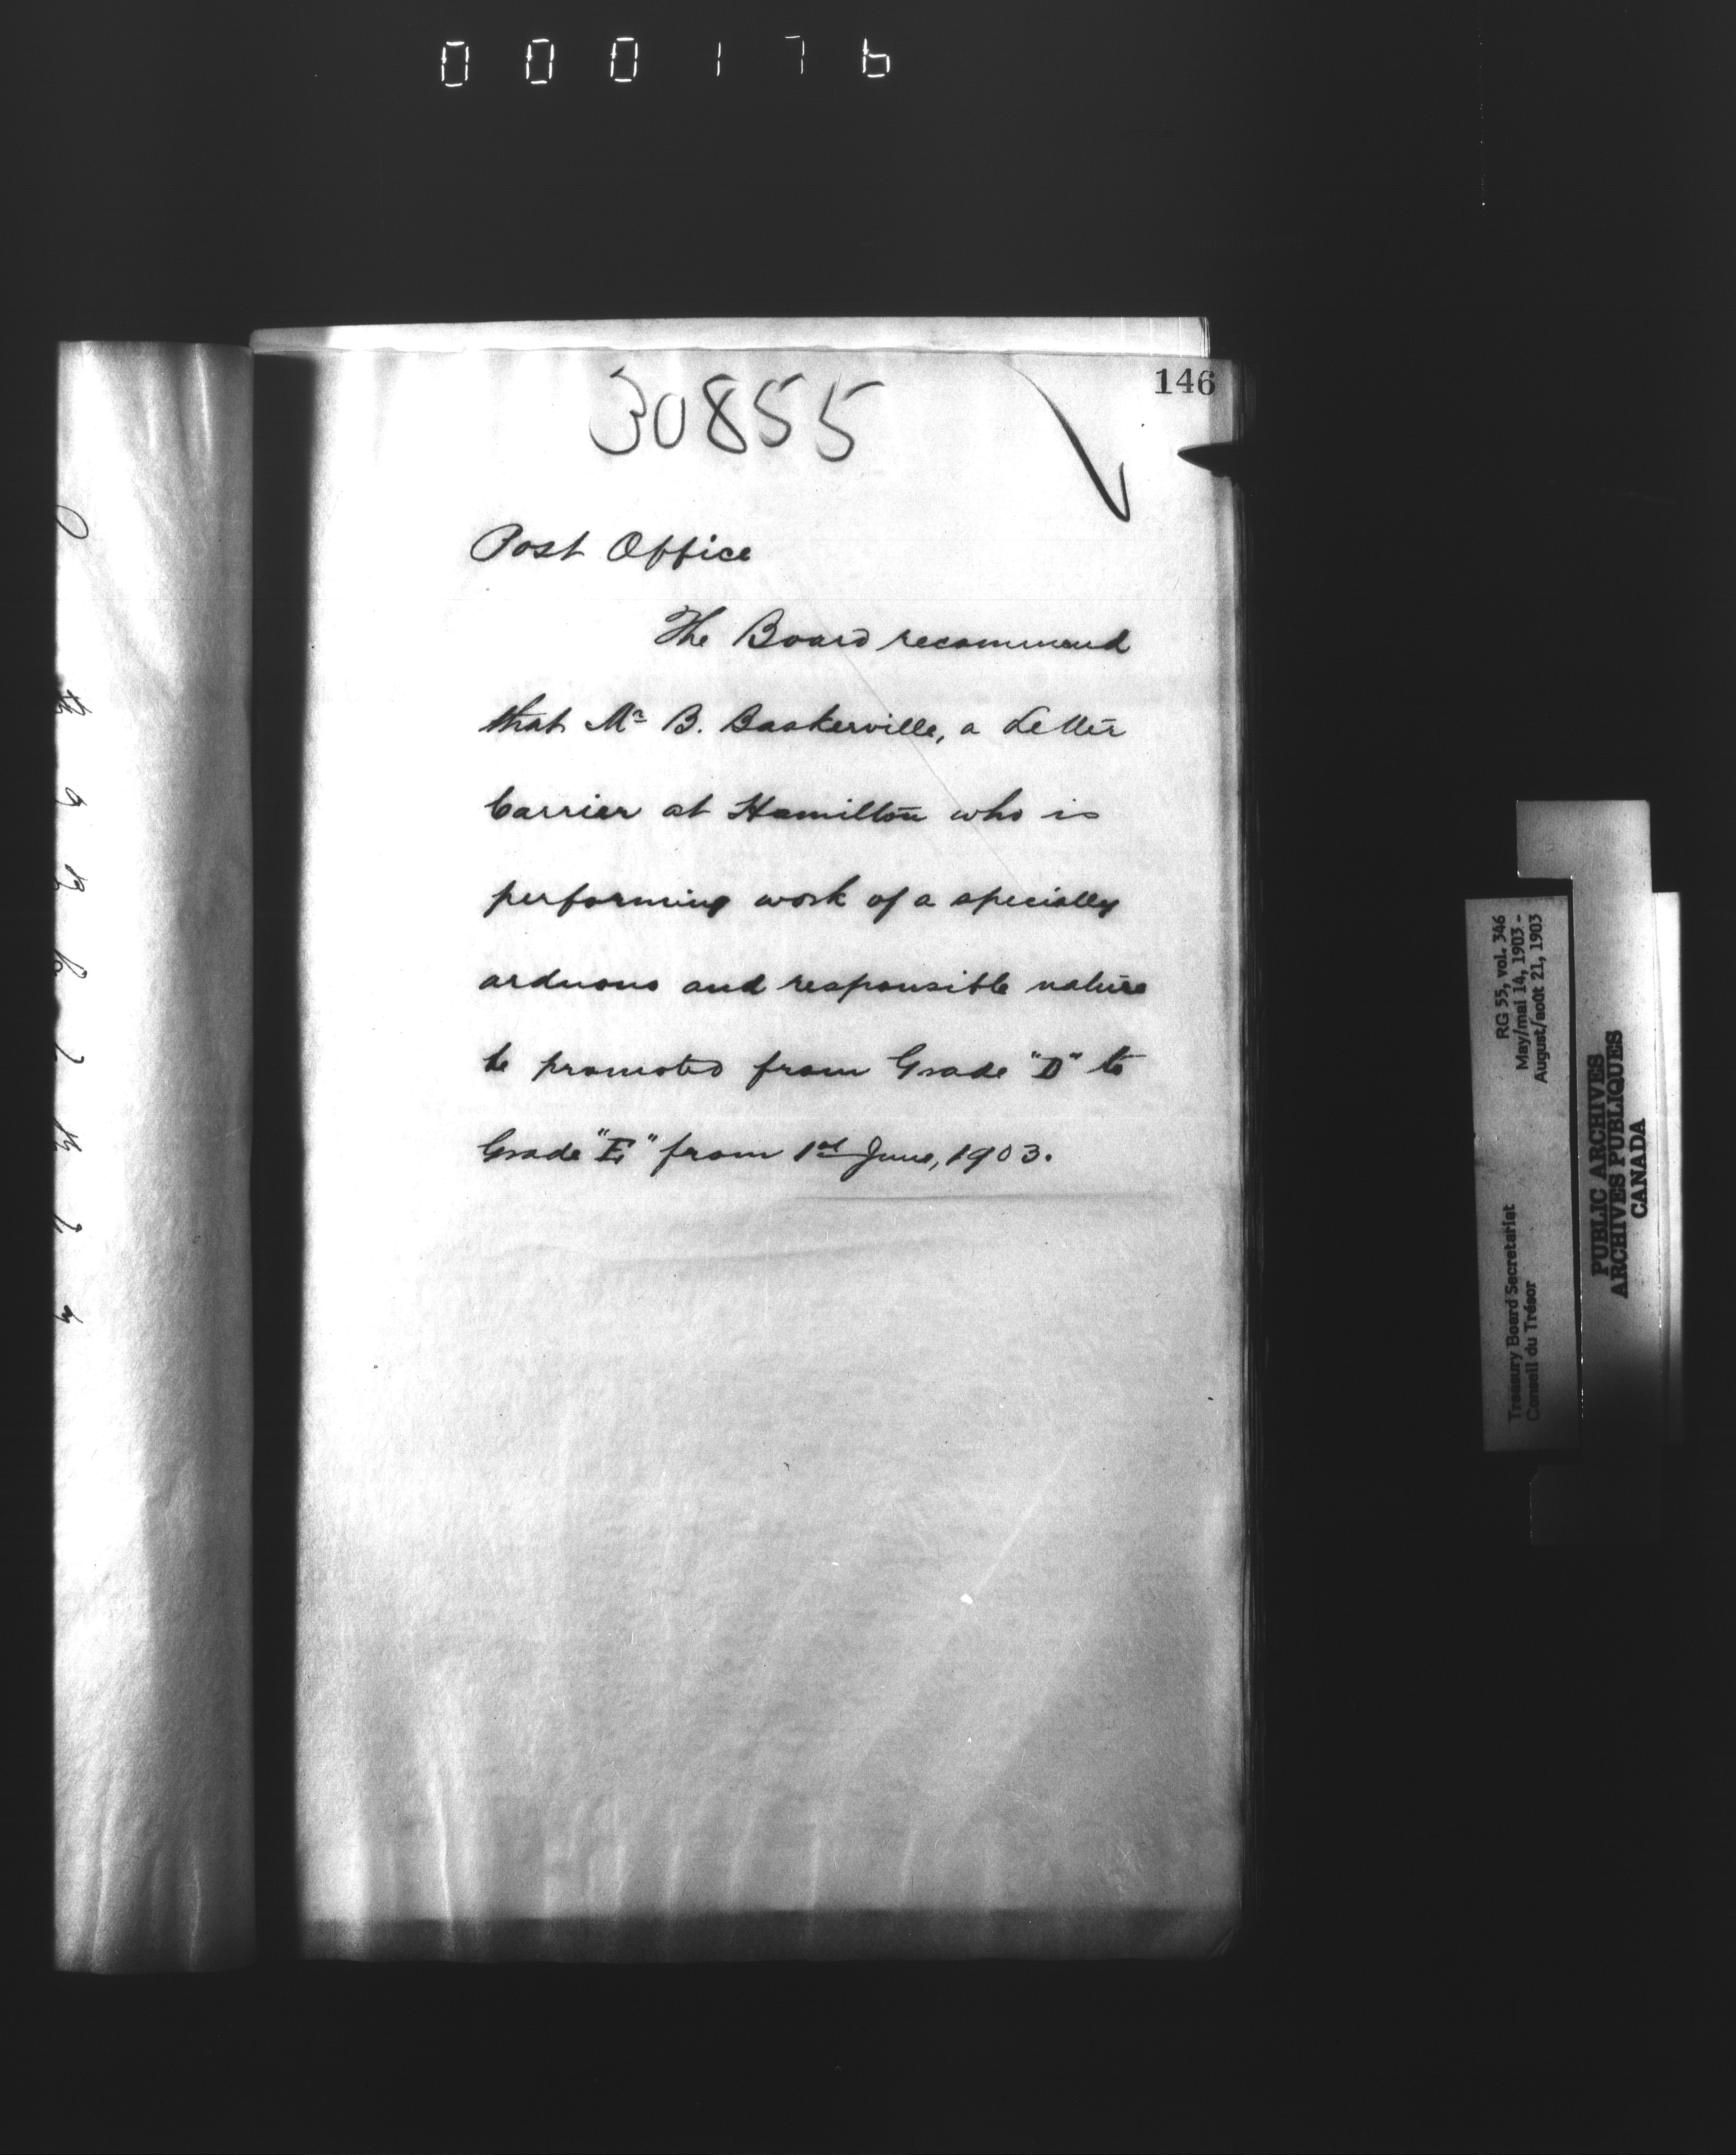 000176
146
30855
Post Office
The Board recommend
that Mr B. Baskerville, a Letter
Carrier at Hamilton who is
performing work of a specially
arduous and responsible nature
be promoted from Grade "D" to
Grade "E" from 1st June, 1903.
RG 55, vol. 346
May/mai 14, 1903 -
August/août 21, 1903
Treasury Board Secretariat
Conseil du Trésor
PUBLIC ARCHIVES
ARCHIVES PUBLIQUES
CANADA